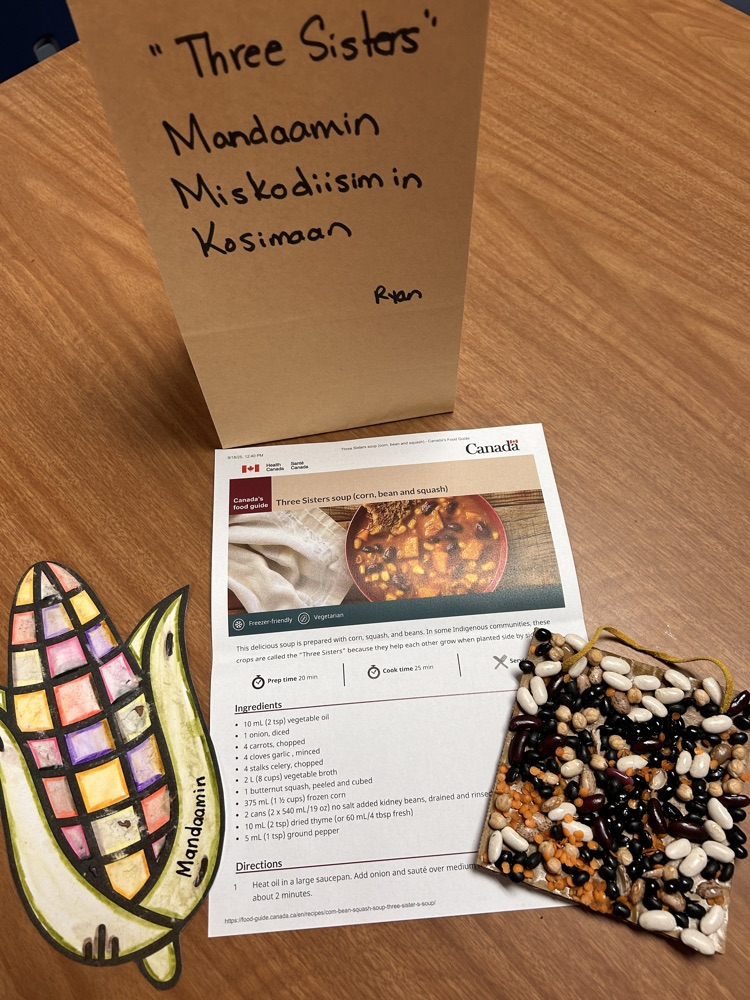 "Three Sisters"
Mandaamin
Miskodiisimin
Kosimaan
Ryan
9/19/25, 12:40 PM
Three Sisters soup (corn, bean and squash) - Canada's Food Guide
Health Canada
Santé Canada
Canada
Canada's food guide
Three Sisters soup (corn, bean and squash)
Freezer-friendly
Vegetarian
This delicious soup is prepared with corn, squash, and beans. In some Indigenous communities, these
crops are called the "Three Sisters" because they help each other grow when planted side by
Prep time 20 min
Cook time 25 min
Ingredients
• 10 mL (2 tsp) vegetable oil
• 1 onion, diced
• 4 carrots, chopped
• 4 cloves garlic , minced
• 4 stalks celery, chopped
• 2 L (8 cups) vegetable broth
• 1 butternut squash, peeled and cubed
• 375 mL (1 ½ cups) frozen corn
• 2 cans (2 x 540 mL/19 oz) no salt added kidney beans, drained and
• 10 mL (2 tsp) dried thyme (or 60 mL/4 tbsp fresh)
• 5 mL (1 tsp) ground pepper
Directions
1 Heat oil in a large saucepan. Add onion and sauté over
about 2 minutes.
https://food-guide.canada.ca/en/recipes/corn-bean-squash-soup-three-sister-s-soup/
Mandaamin